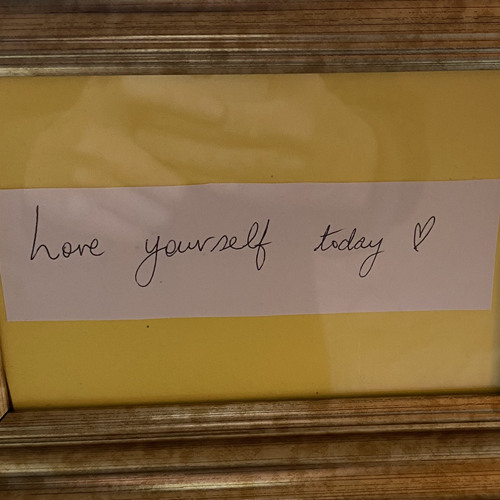 Love yourself today ♡